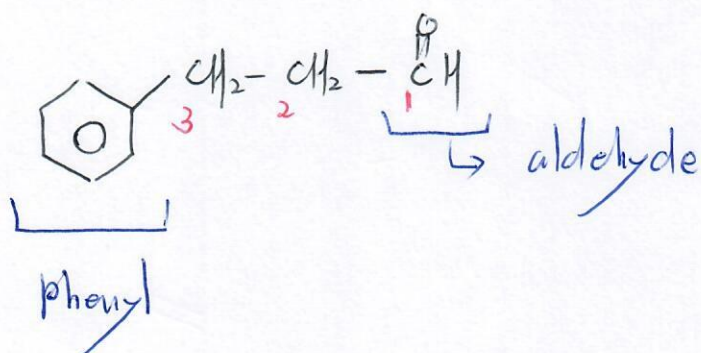 O
CH₂- CH₂ - CH
3 2 1
↳ aldehyde
phenyl